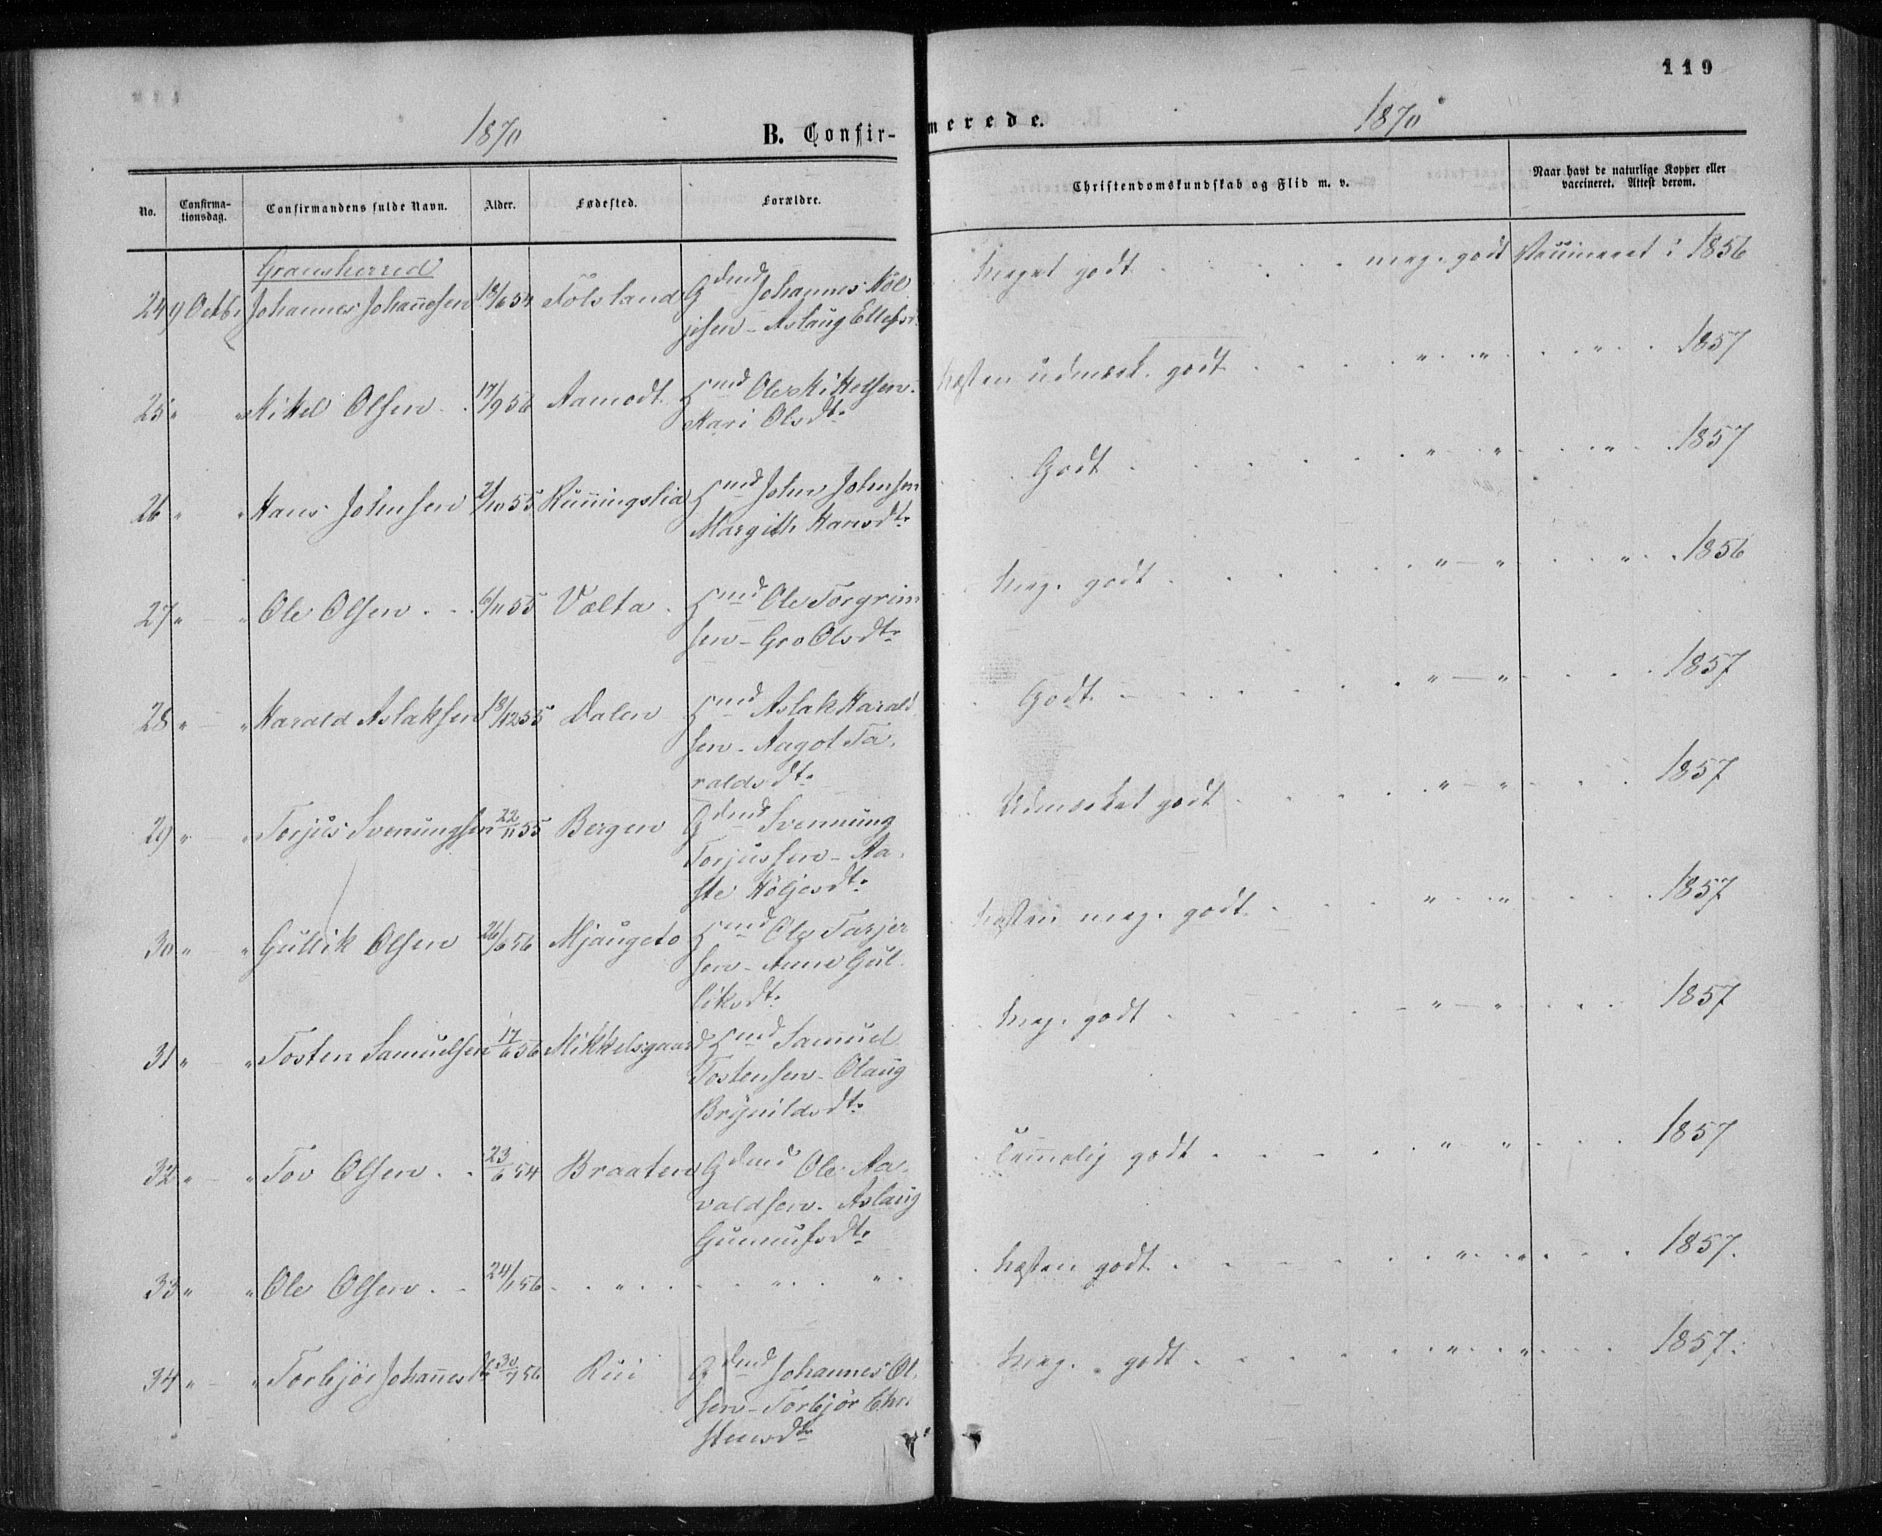 119
1870
B. Confir-
merede.
1870
No.
Confirma-
tionsdag.
Confirmandens fulde Navn.
Alder.
Fødested.
Forældre.
Christendomskundskab og Flid m. v.
Naar havt de naturlige Kopper eller
vaccineret. Attest derom.
Gransherred
24 9 Octb. Johannes Johannesen 54 Tolsland Gdmd Johannes Høl
jesen - Aslaug Ellefsd.
Meget godt . . . . . meg. godt Vaccineret i 1856
25 " " Mikel Olsen . 17/9 56 Aamodt Hmd Ole Mikkelsen.
Kari Olsdtr
Næsten udmærk. godt . . . . " . " . . " . 1857
26 " " Hans Johnsen 2/10 55 Runningslia Hmd John Johnsen
Margith Hansdtr
Godt . . . . . " . " . . " . 1857
27 " " Ole Olsen . . 6/11 55 Vælta . Hmd Ole Torgrim
sen - Gro Olsdtr
Meg. godt . . . . . " - " . . " . 1856
28 " " Harald Aslaksen 18/12 55 Dalen Hmd Aslak Harald
sen - Aagot Ta-
raldsdtr
Godt . . . . . " - " . . . 1857
29 " " Torjus Svenungsen 22/11 55 Bergen Gdmd Svennung
Torjussen - Aa-
ste Höljesdtr
Udmærket godt . . . . . " - " . . . 1857
30 " " Gullik Olsen 26/6 56 Mjaugeto Hmd Ole Tarjer
sen - Anne Gul-
liksdtr
Næsten meg. godt . . . . " . " . . . 1857
31 " " Tosten Samuelsen 17/6 56 Mikkelsgaard Hmd Samuel
Tostensen - Olaug
Brynildsdtr
Meg. godt . . . . . " - " . . . 1857
32 " " Tov Olsen . . 23/6 54 Braaten Gdmd Ole Aa-
valdsen - Aslaug
Gunnufsdtr
Temmelig godt . . . . . " " . . . 1857
33 " " Ole Olsen . . 24/1 56 . . " . . . . " . . "
Næsten godt . . . . . " . " . . . 1857.
34 " " Torbjør Johannesdtr 30/7 56 Rui Gdmd Johannes Ol-
sen - Torbjør Chri
stensdtr
Meg. godt . . . . . " . " . . . 1857.